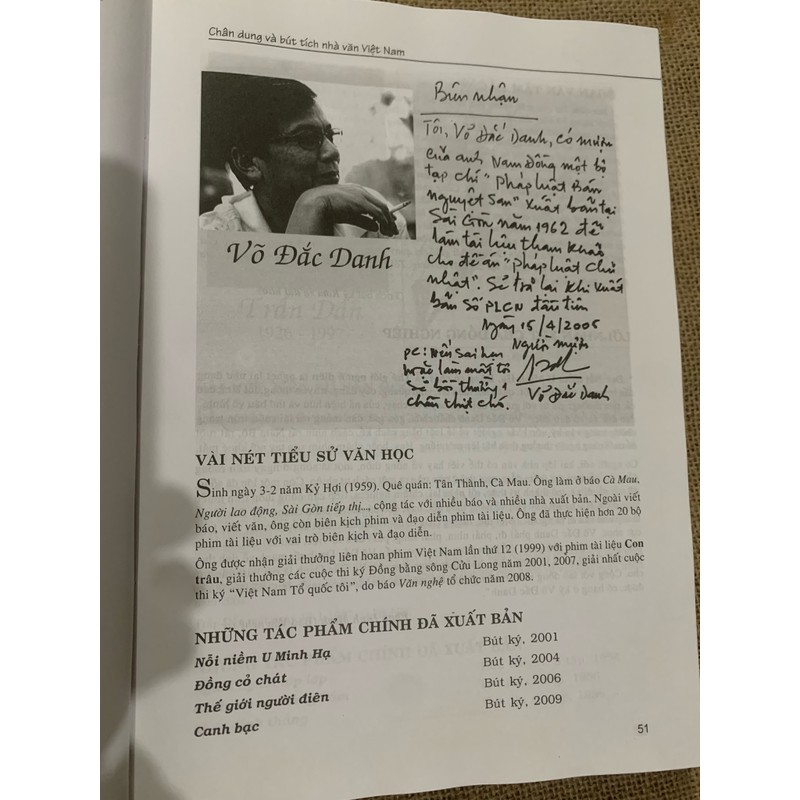 Chân dung và bút tích nhà văn Việt Nam
Võ Đắc Danh
Biên nhận
Tôi, Võ Đắc Danh, có mượn
của anh Nam Đồng một bộ
tạp chí "Pháp luật Bán
nguyệt san" xuất bản tại
Sài Gòn năm 1962 để
làm tài liệu tham khảo
cho đề án "Pháp luật chủ
nhật". Sẽ trả lại khi xuất
bản số PLCN đầu tiên
Ngày 15/4/2006
Người mượn
Võ Đắc Danh
PC: Nếu sai hẹn
hoặc làm mất tôi
sẽ bồi thường 1
chầu thịt chó.
VÀI NÉT TIỂU SỬ VĂN HỌC
Sinh ngày 3-2 năm Kỷ Hợi (1959). Quê quán: Tân Thành, Cà Mau. Ông làm ở báo Cà Mau,
Người lao động, Sài Gòn tiếp thị..., cộng tác với nhiều báo và nhiều nhà xuất bản. Ngoài viết
báo, viết văn, ông còn biên kịch phim và đạo diễn phim tài liệu. Ông đã thực hiện hơn 20 bộ
phim tài liệu với vai trò biên kịch và đạo diễn.
Ông được nhận giải thưởng liên hoan phim Việt Nam lần thứ 12 (1999) với phim tài liệu Con
trâu, giải thưởng các cuộc thi ký Đồng bằng sông Cửu Long năm 2001, 2007, giải nhất cuộc
thi ký "Việt Nam Tổ quốc tôi", do báo Văn nghệ tổ chức năm 2008.
NHỮNG TÁC PHẨM CHÍNH ĐÃ XUẤT BẢN
Nỗi niềm U Minh Hạ Bút ký, 2001
Đồng cỏ chát Bút ký, 2004
Thế giới người điên Bút ký, 2006
Canh bạc Bút ký, 2009
51